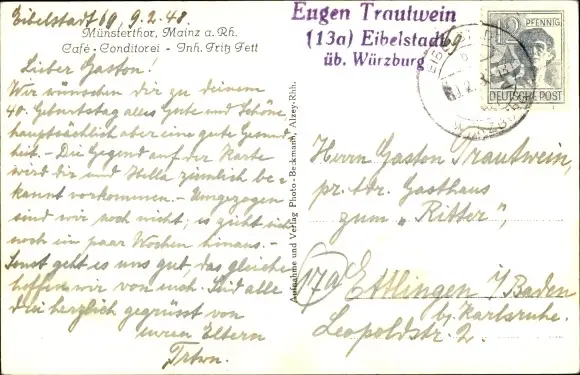 Eibelstadt 69, 9.2.48.
Münsterthor, Mainz a. Rh.
Café - Conditorei - Inh. Fritz Fett
Lieber Gaston!
Wir wünschen dir zu deinem
40. Geburtstag alles Gute und Schöne
hauptsächlich aber eine gute Gesund
heit. - Die Gegend auf der Karte
wird dir und Stella ziemlich be-
kannt vorkommen. - Umgezogen
sind wir noch nicht, es zieht sich
noch ein paar Wochen hinaus. -
Sonst geht es uns gut, das gleiche
hoffen wir von euch. Seid alle
herzlich gegrüsst von
euren Eltern
Trtwn.
Aufnahme und Verlag Photo-Beckmann, Alzey-Rhh.
Eugen Trautwein
(13a) Eibelstadt 69
üb. Würzburg
12 PFENNIG
DEUTSCHE POST
Herrn Gaston Trautwein,
pr. adr. Gasthaus
zum „Ritter",
17a Ettlingen i/Baden
bj. Karlsruhe.
Leopoldstr. 2.